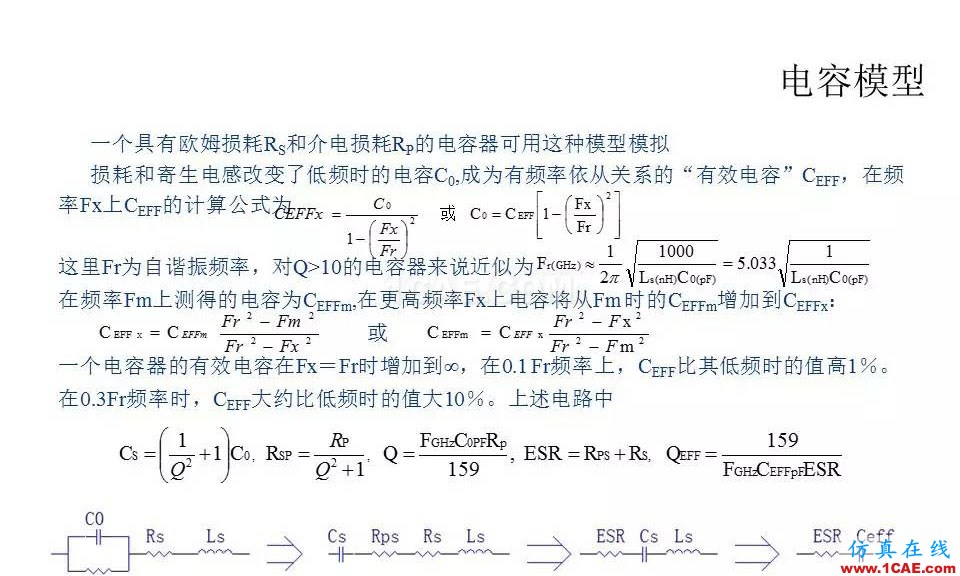 电容模型
一个具有欧姆损耗R_S和介电损耗R_P的电容器可用这种模型模拟
损耗和寄生电感改变了低频时的电容C_0,成为有频率依从关系的“有效电容”C_EFF，在频
率Fx上C_EFF的计算公式为 CEFFx = C0 / (1 − (Fx/Fr)^2) 或 C0 = C EFF [1 − (Fx/Fr)^2]
这里Fr为自谐振频率，对Q>10的电容器来说近似为 Fr(GHz) ≈ 1/2π √(1000 / Ls(nH)C0(pF)) = 5.033 √(1 / Ls(nH)C0(pF))
在频率Fm上测得的电容为C_EFFm,在更高频率Fx上电容将从Fm时的C_EFFm增加到C_EFFx：
C EFF x = C EFFm (Fr^2 − Fm^2) / (Fr^2 − Fx^2) 或 C EFFm = C EFF x (Fr^2 − Fx^2) / (Fr^2 − Fm^2)
一个电容器的有效电容在Fx＝Fr时增加到∞，在0.1Fr频率上，C_EFF比其低频时的值高1%。
在0.3Fr频率时，C_EFF大约比低频时的值大10%。上述电路中
Cs = (1/Q^2 + 1)C0, RSP = RP / (Q^2 + 1), Q = FGHzC0PFRp / 159, ESR = RPS + RS, QEFF = 159 / FGHzCEFFpFESR
C0 Rs Ls Cs Rps Rs Ls ESR Cs Ls ESR Ceff
仿真在线
www.1CAE.com